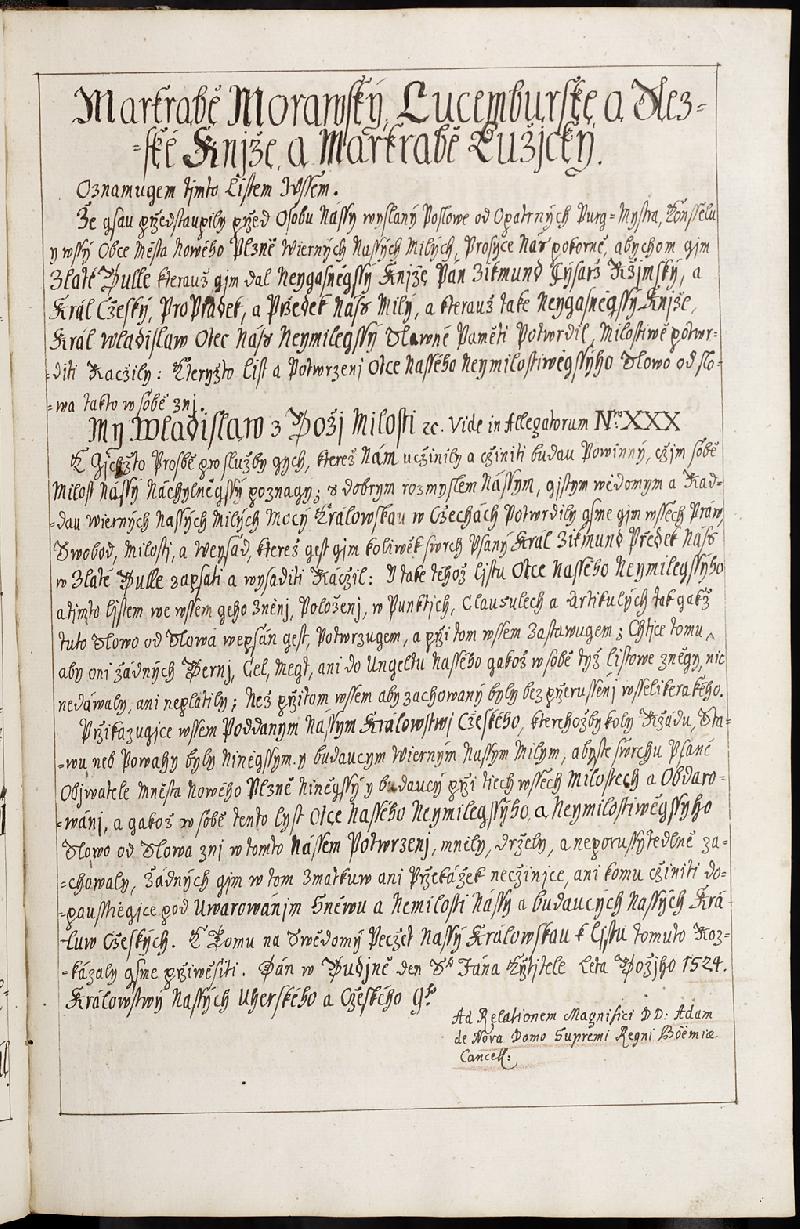 Markrabě Morawský, Lucemburské, a Slez=
=ské Knjže, a Markrabě Lužjcký.
Oznamugem tjmto Listem Wssem.
Že gsau předstaupily před Osobu Nássy wyslaný Poslowe od Opatrných Purg=Mystra, Konsselu
y wssý Obce Města Nowého Plzně Wierných Nassých Milých, Prosyce Nás pokorně, abychom gjm
Zlaté Bulle kterauž gjm dal Neygasněgssý Knjže Pan Zikmund Cýsarž Ržjmský, a
Král Cžeský, ProPředek, a Předek Náss Milý, a kterauž také Neygasněgssý Knjže,
Král Wladislaw Otec Náss Neymilegssý Slawné Paměti Potwrdil, Milostiwě potwr=
=diti Racžily: Kteryžto List a Potwrzenj Otce Nassého Neymilostiwěgssýho Slowo od slo=
=wa takto w sobě znj.
My Wladislaw z Božj Milosti ꝛc. Vide in Allegatorum N:ro XXX
K Gjchžto Prosbě pro služby gych, kteréž Nám ucžinily a cžiniti budau Powinný, cžjm sobě
Milost Nássý Náchylněgssý poznagy; s dobrým rozmyslem Nássym, gistym wědomym a Rad=
=dau wierných Nassých Milých Mocý Královskau w Cžechách Potwrdily gsme gjm wssech Práw,
Swobod, Milostj, a Weysad, kteréž gest gjm koliwěk swrch Psaný Král Zikmund Předek Náss
w Zlaté Bulle zapsati a wysaditi Ráčžil: I také téhož Ljstu Otce Nassého Neymilegssýho
a tjmto Ljstem we wssem geho Zněnj, Položenj, w Punktjch, Clausulech a Artikulých tak gakž
tuto Slowo od Slowa wepsán gest, Potwrzugem, a při tom wssem Zastawugem; Chtjce tomu
aby oni žádných Bernj, Cel, Megt, ani do Ungeltu Nassého gakož w sobě týž Listowe znegy, nic
nedáwaly, ani neplatily; Než přitom wssem aby zachowaný byly bez přerussěnj wsselikterakého.
Přikazugjce wssem Poddanym Nassym Královstwj Cžeského, kterehožby koly Ržadu, Sta=
=wu neb Powahy byly Niněgssym y budaucym Wiernym Nassym Milym, abyste swrchu Psané
Obywatele Města Nowého Plzně Niněgssý y budaucý při tiech wssech Milostech a Obdaro=
=wánj, a gakož w sobě tento Lyst Otce Nassého Neymilegssýho, a Neymilostiwěgssýho
Slowo od Slowa znj w tomto Nássem Potwrzenj, mněly, drželly, a neporussytedlně za=
=chowaly, Žádných gjm w tom Zmatkuw ani Překážek necžinjce, ani komu cžiniti do=
=paustiegjce pod Uwarowánjm Hněwu a Nemilosti Nássý a budaucých Nassých Krá=
=luw Cžeských. K Tomu na Swědomý Pecžet Nassý Královskau k Ljstu tomuto Roz=
=kázaly gsme přiwěsiti. Dán w Budjně den S.º Jána Křtitele Léta Božjho 1524.
Královstwý Nassých Uherského a Cžeského 9.º
Ad Relationem Magnifici DD: Adam
de Nova Domo Supremi Regni Boëmiæ
Cancell: